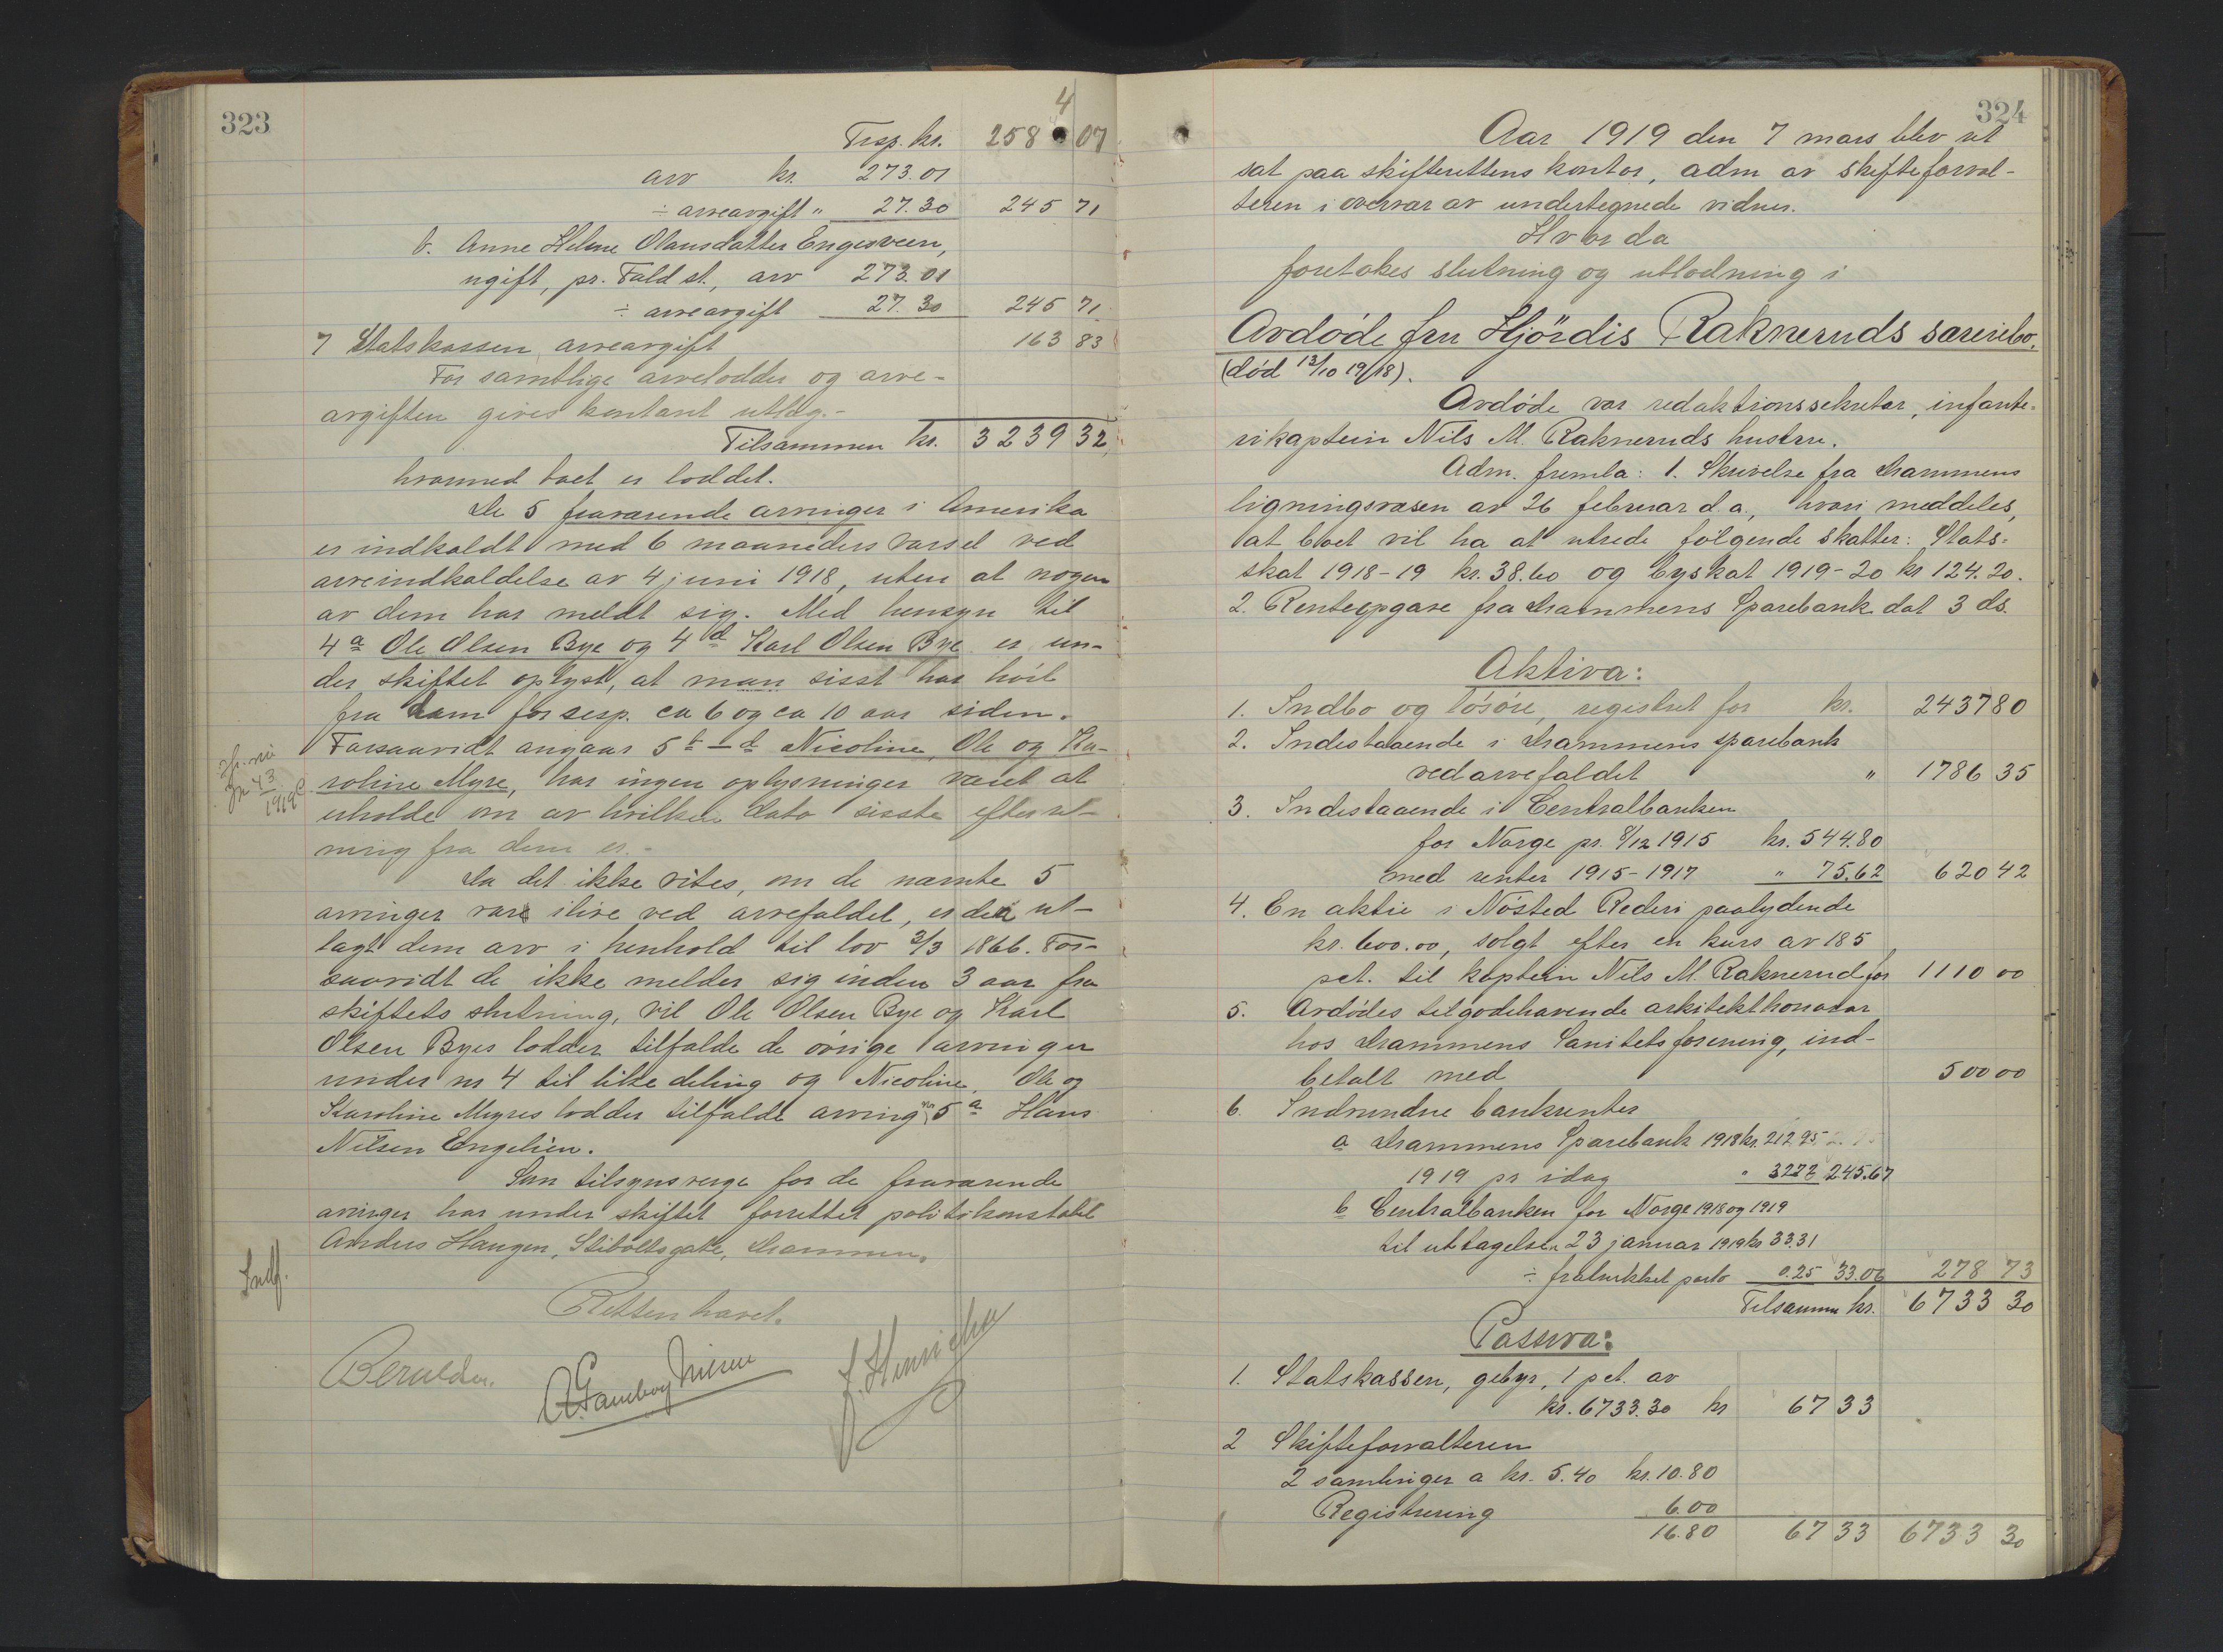 323
4
Trsp. kr. 258 07
arv kr. 273.01
÷ arveavgift " 27.30 245 71
b. Anne Helene Olausdatter Engesveen,
ugift, pr. Fald st., arv 273.01
÷ arveavgift 27.30 245 71
7 Statskassen, arveavgift 163 83
For samtlige arvelodder og arve-
avgiften gives kontant utlæg.-
Tilsammen kr. 3239 32
hvormed boet er loddet.
De 5 fraværende arvinger i Amerika
er indkaldt med 6 maaneders varsel ved
arveindkaldelse av 4 juni 1918, uten at nogen
av dem har meldt sig. Med hensyn til
4 a Ole Olsen Bye og 4 d Karl Olsen Bye er un-
der skiftet oplyst, at man sisst har hört
fra dem for resp. ca 6 og ca 10 aar siden.
Forsaavidt angaar 5 b - d Nicoline, Ole og Ka-
roline Myre, har ingen oplysninger været at
erholde om av hvilken dato sisste efterret-
ning fra dem er.-
Da det ikke vites, om de nævnte 5
arvinger var ilive ved arvefaldet, er der ut-
lagt dem arv i henhold til lov 3/3 1866. For-
saavidt de ikke melder sig inden 3 aar fra
skiftets slutning, vil Ole Olsen Bye og Karl
Olsen Byes lodder tilfalde de övrige arvinger
under nr 4 til like deling og Nicoline, Ole og
Karoline Myres lodder tilfalde arving nr 5 a Hans
Nilsen Engelien.
Som tilsynsverge for de fraværende
arvinger har under skiftet forrettet politikonstabel
Anders Haugen, Stiboltsgate, Drammen.
Indf.
Retten hævet.
324
Aar 1919 den 7 mars blev ret
sat paa skifterettens kontor, adm av skifteforval-
teren i overvær av undertegnede vidner.
Hvor da
foretokes slutning og utlodning i
Avdøde fru Hjördis Rakneruds særeiebo.
(død 13/10 1918).
Avdøde var redaktionssekretær, infante-
rikaptein Nils M. Rakneruds hustru.
Adm. fremla: 1. Skrivelse fra Drammens
ligningsvæsen av 26 februar d.a., hvori meddeles,
at boet vil ha at utrede følgende skatter: Stats-
skat 1918-19 kr. 38.60 og byskat 1919-20 kr 124.20.
2. Renteopgave fra Drammens Sparebank dat 3 ds.
Aktiva:
1. Indbo og lösöre, registrert for kr. 2437 80
2. Indestaaende i Drammens sparebank
ved arvefaldet " 1786 35
3. Indestaaende i Centralbanken
for Norge pr. 8/12 1915 kr. 544.80
med renter 1915-1917 " 75.62 620 42
4. En aktie i Nösted Rederi paalydende
kr. 600.00, solgt efter en kurs av 185
pct. til kaptein Nils M. Raknerud for 1110 00
5. Avdødes tilgodehavende arkitekthonorar
hos Drammens Sanitetsforening, ind-
betalt med 500 00
6. Indvundne bankrenter
a Drammens Sparebank 1918 kr. 212.95
1919 pr idag " 32.72 245.67
b Centralbanken for Norge 1918 og 1919
til uttagelsen 23 januar 1919 kr 33.31
÷ fratrukket porto 0.25 33.06 278 73
Tilsammen kr. 6733 30
Passiva:
1. Statskassen, gebyr, 1 pct. av
kr. 6733.30 kr 67 33
2 Skifteforvalteren
2 samlinger a kr. 5.40 kr. 10.80
Registrering 6.00
16.80 67 33 6733 30